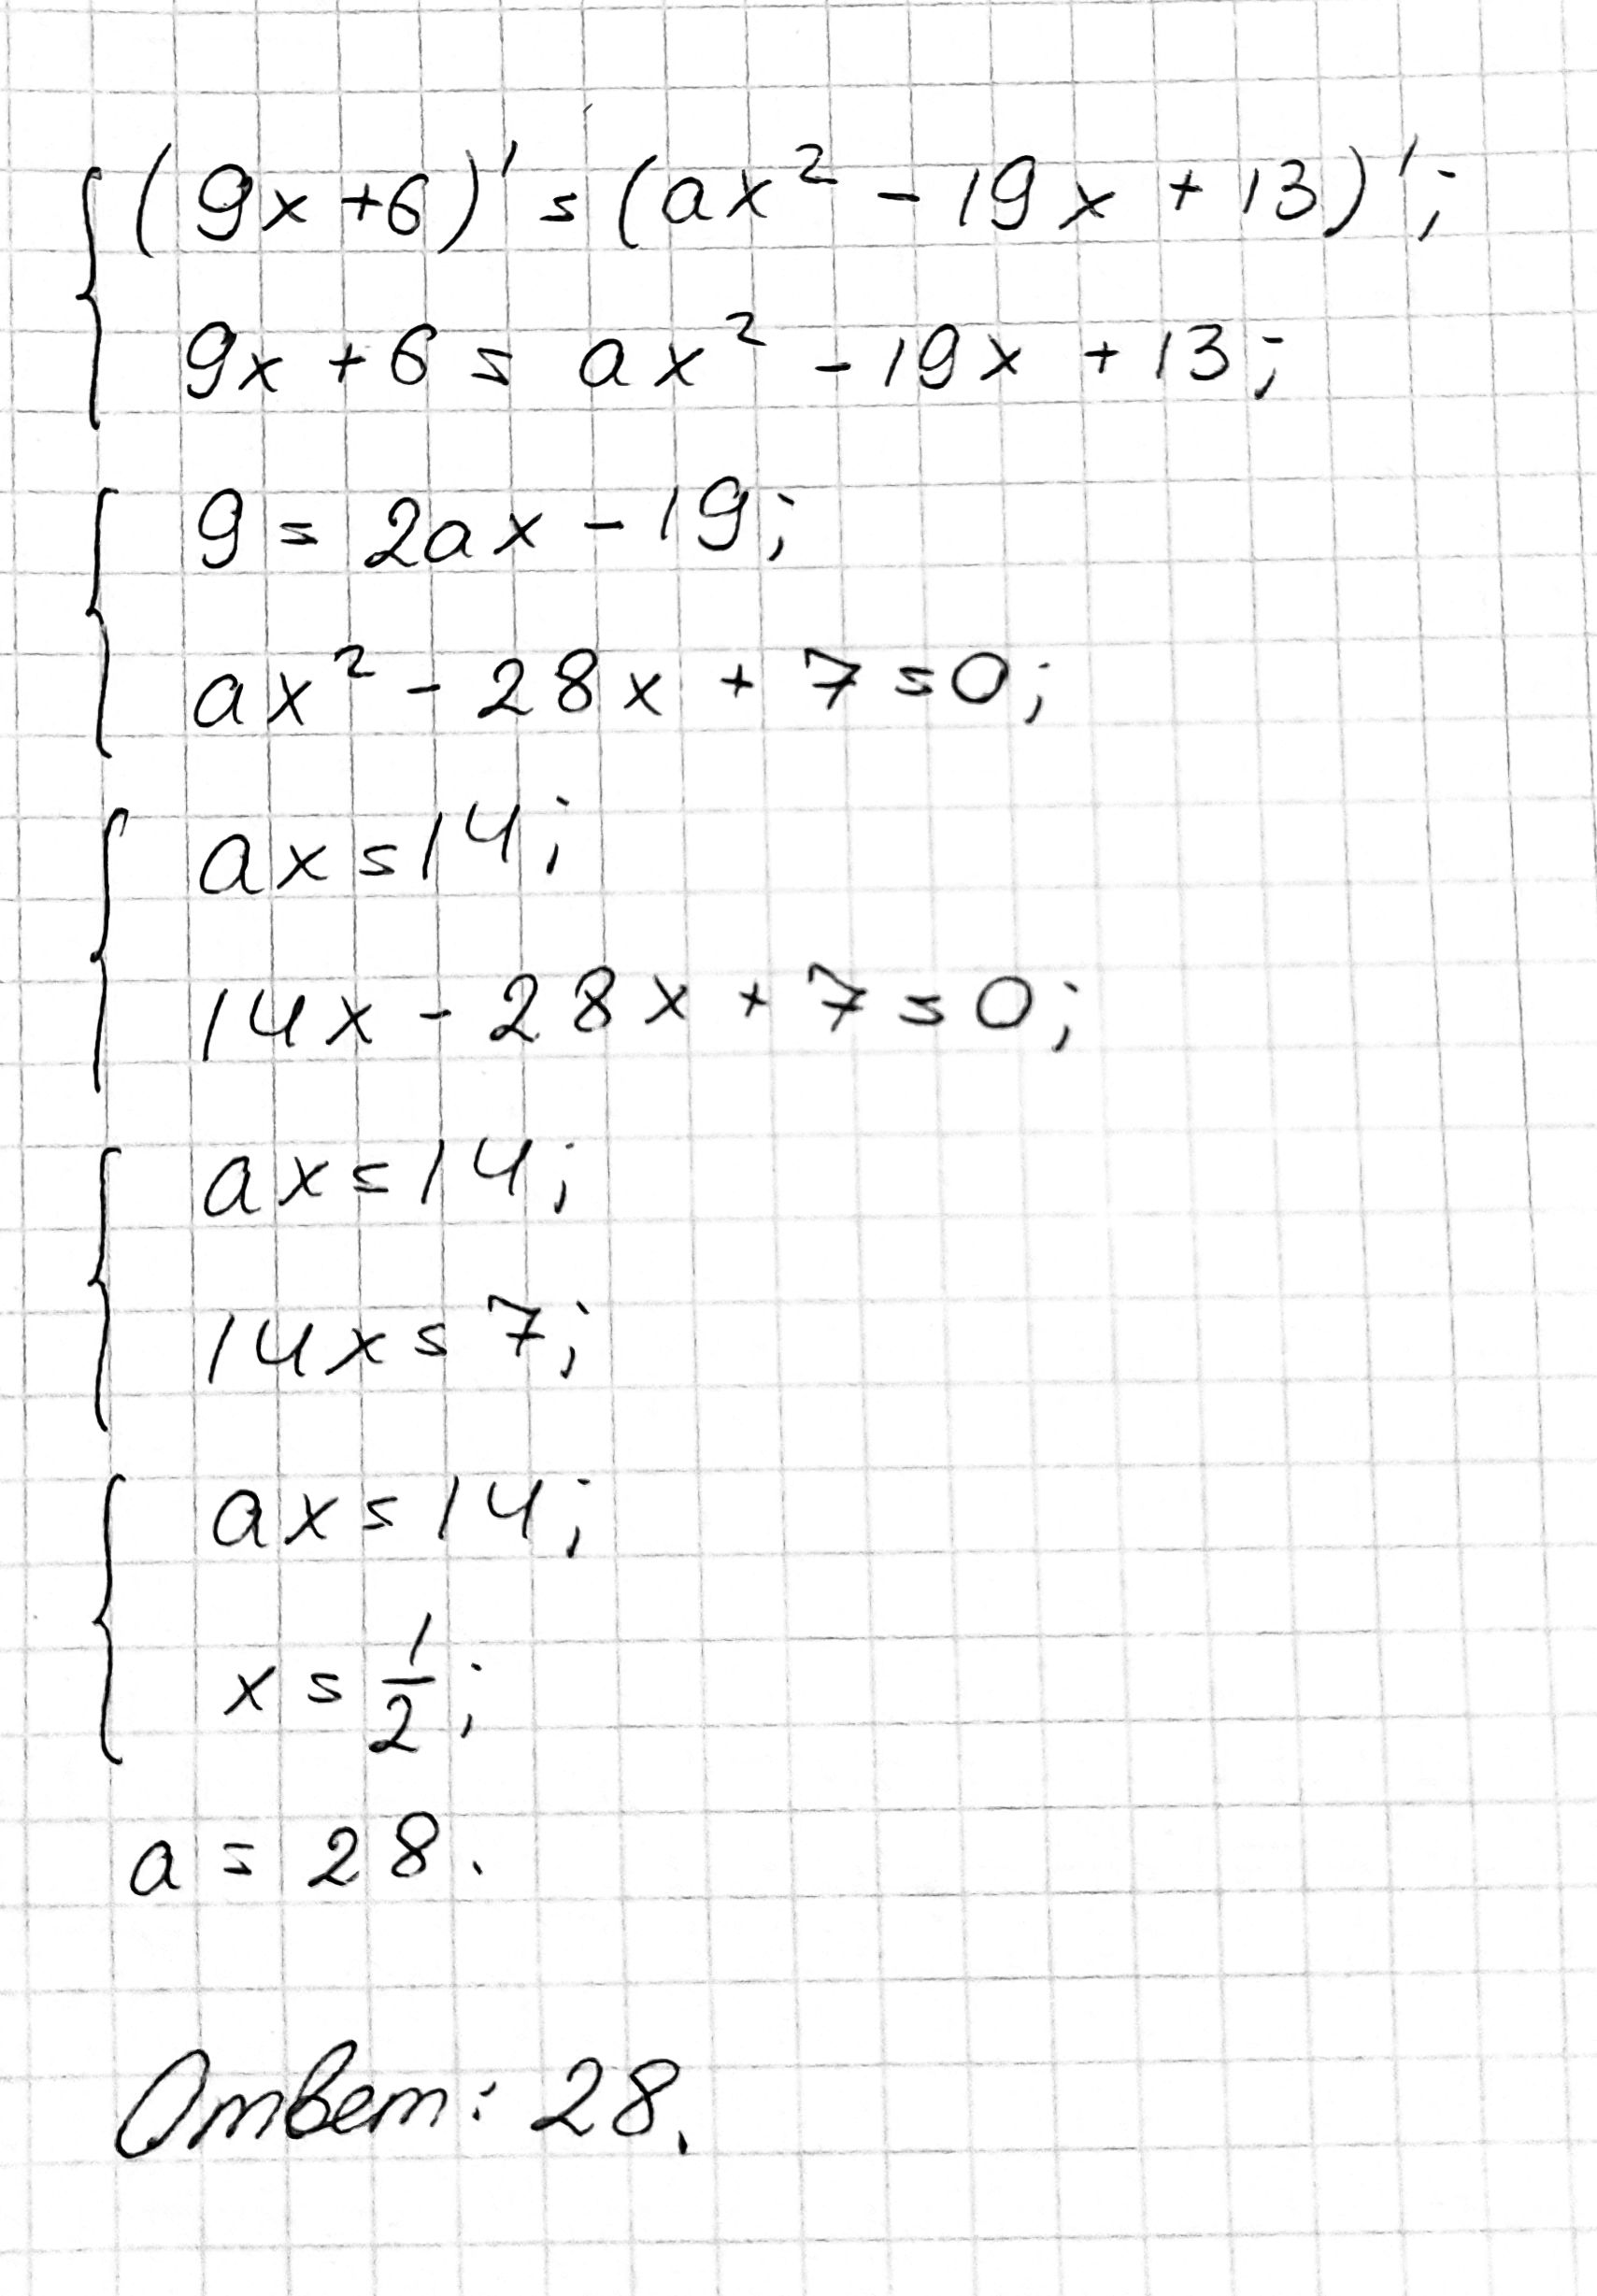 (9x+6)' = (ax² - 19x + 13)';
9x + 6 = ax² - 19x + 13;
9 = 2ax - 19;
ax² - 28x + 7 = 0;
ax = 14;
14x - 28x + 7 = 0;
ax = 14;
14x = 7;
ax = 14;
x = 1/2;
a = 28.
Ответ: 28.